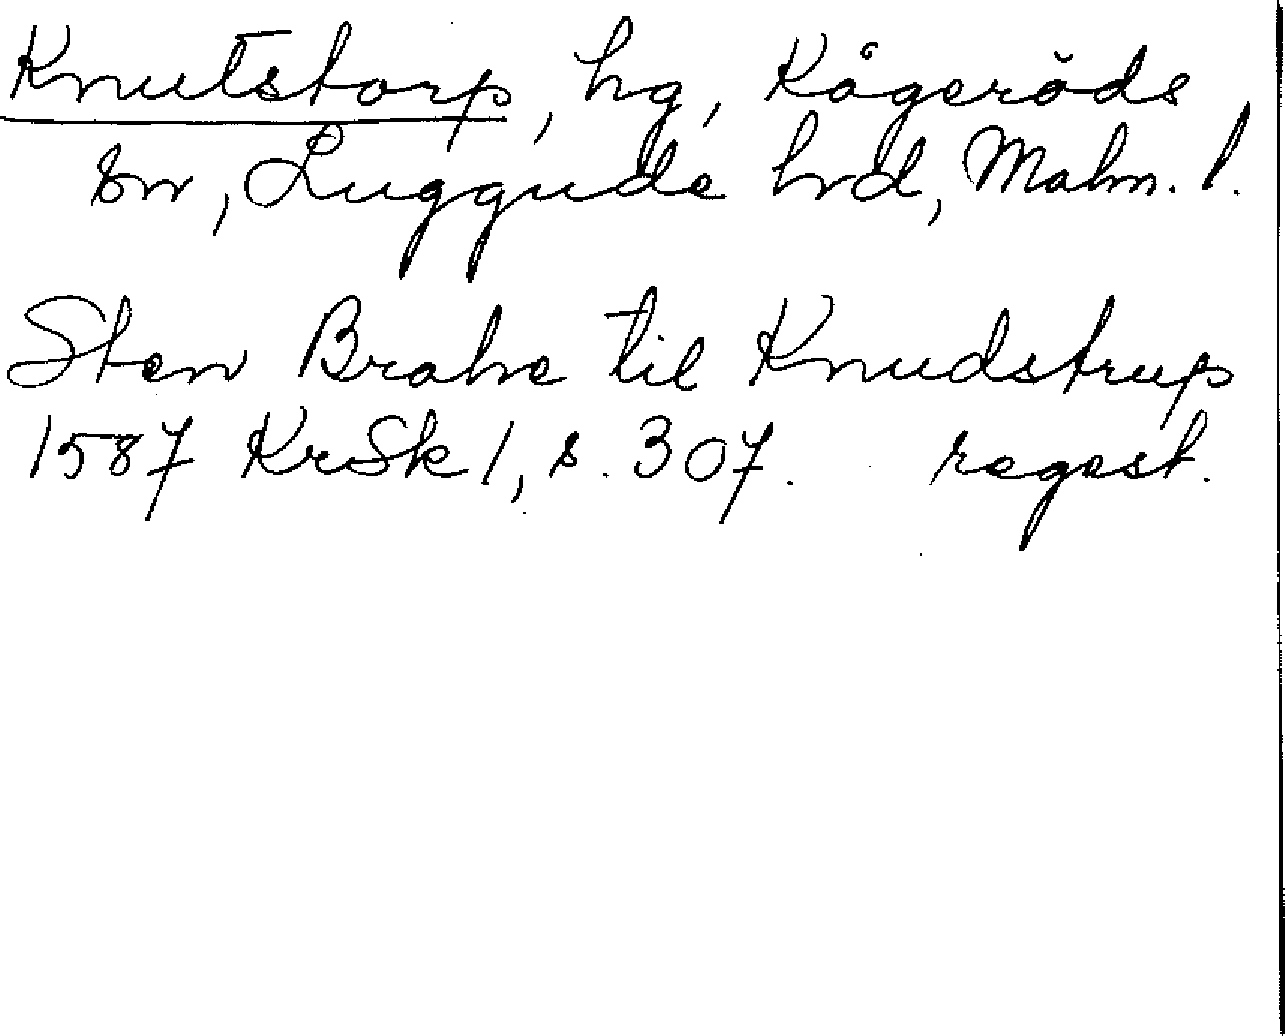 Knutstorp, hg, Kågeröds
sn, Luggude hrd, Malm. l.
Sten Brahe til Knudstrup
1587 KrSk 1, s. 307. regest.